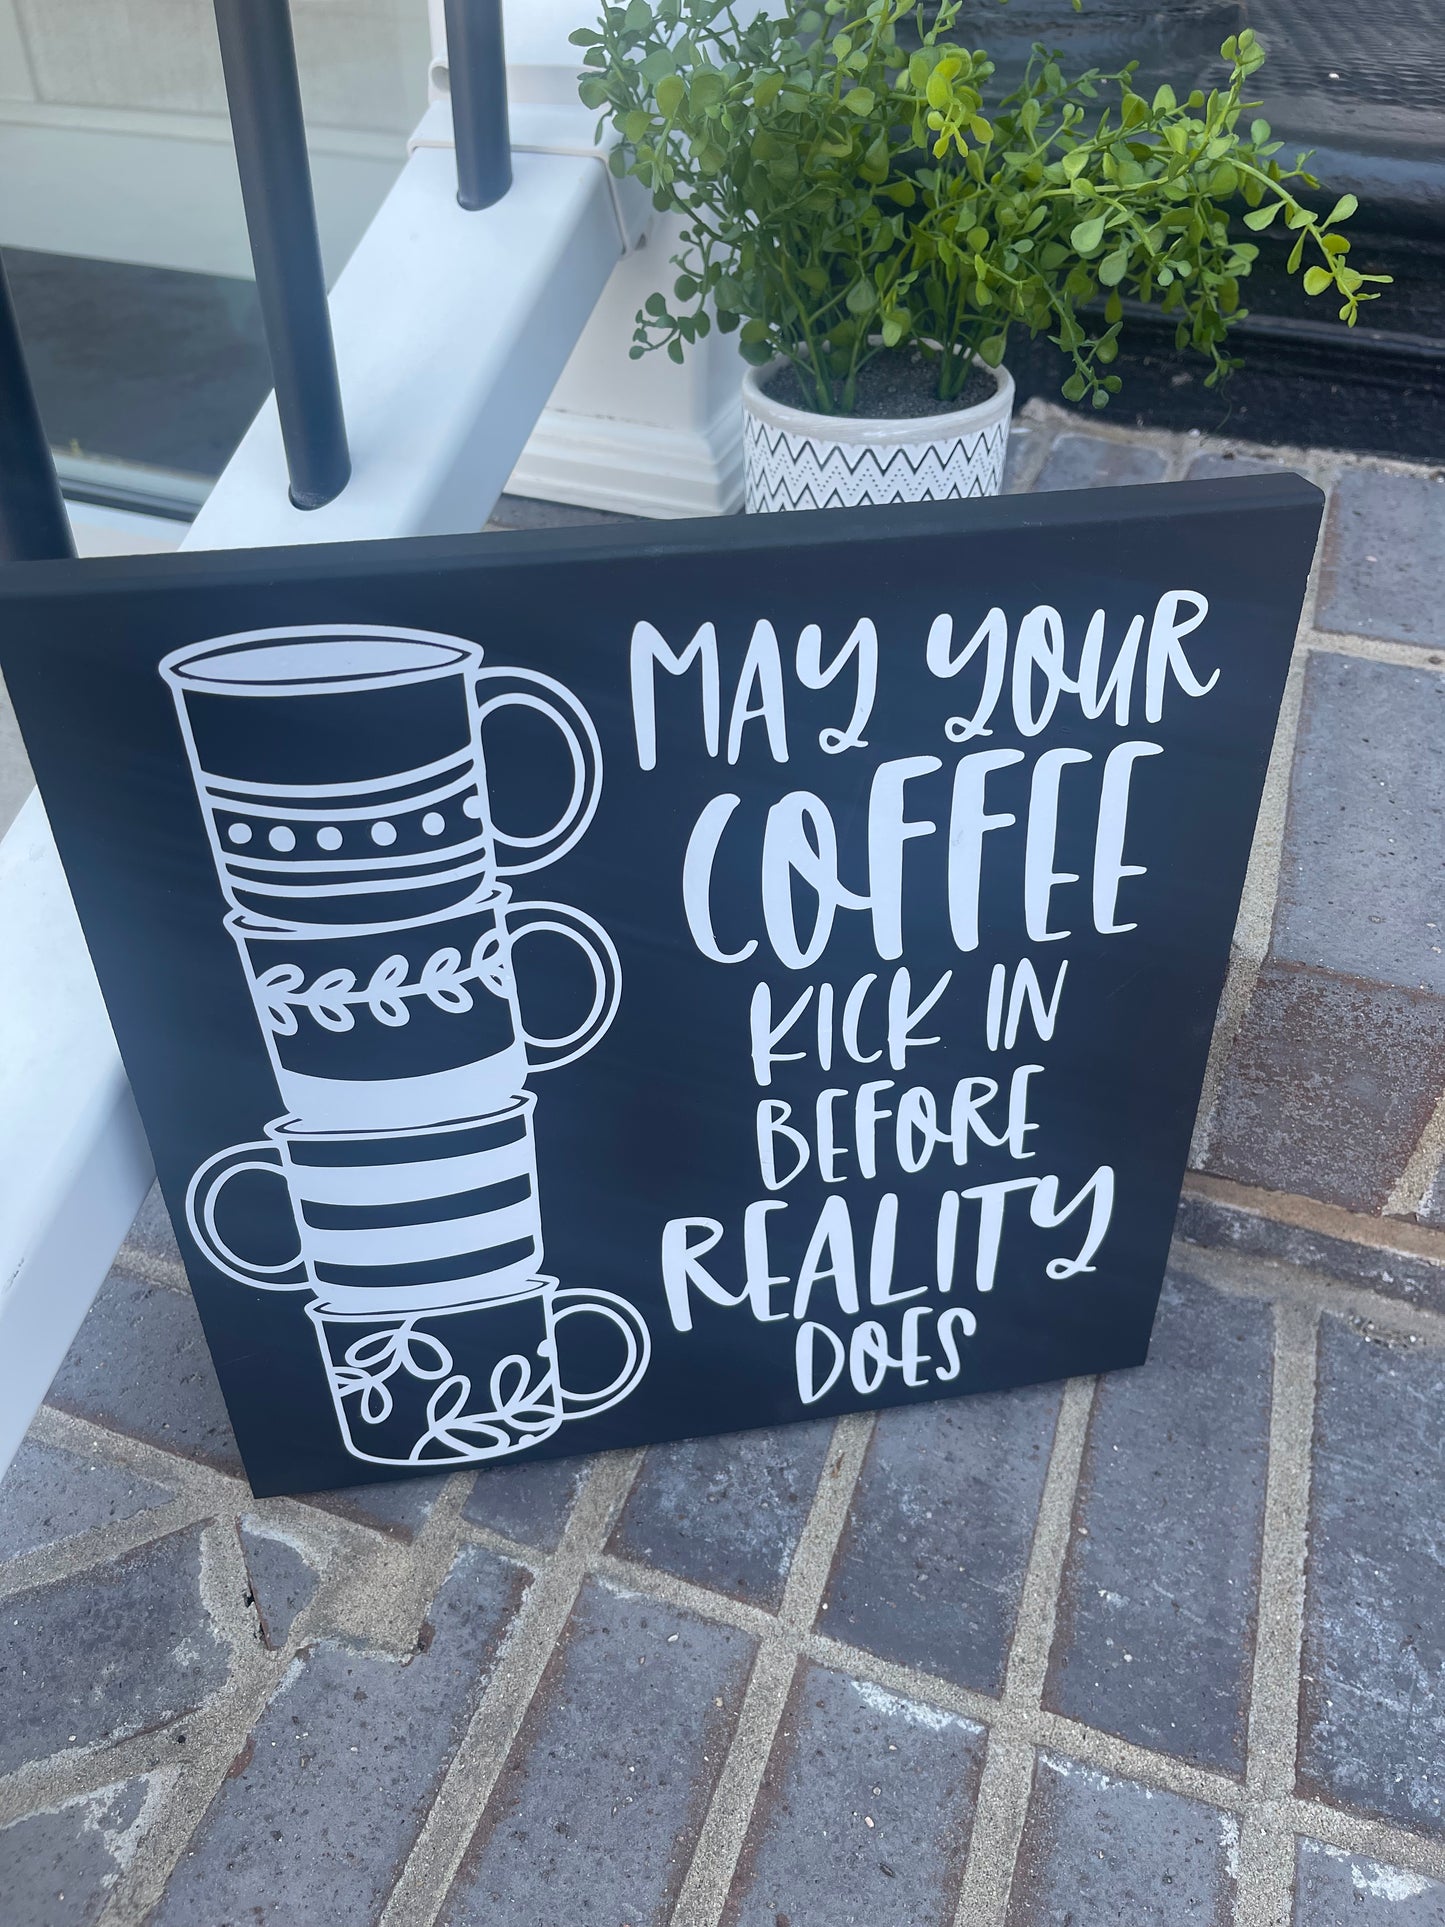 MAY YOUR
COFFEE
KICK IN
BEFORE
REALITY
DOES